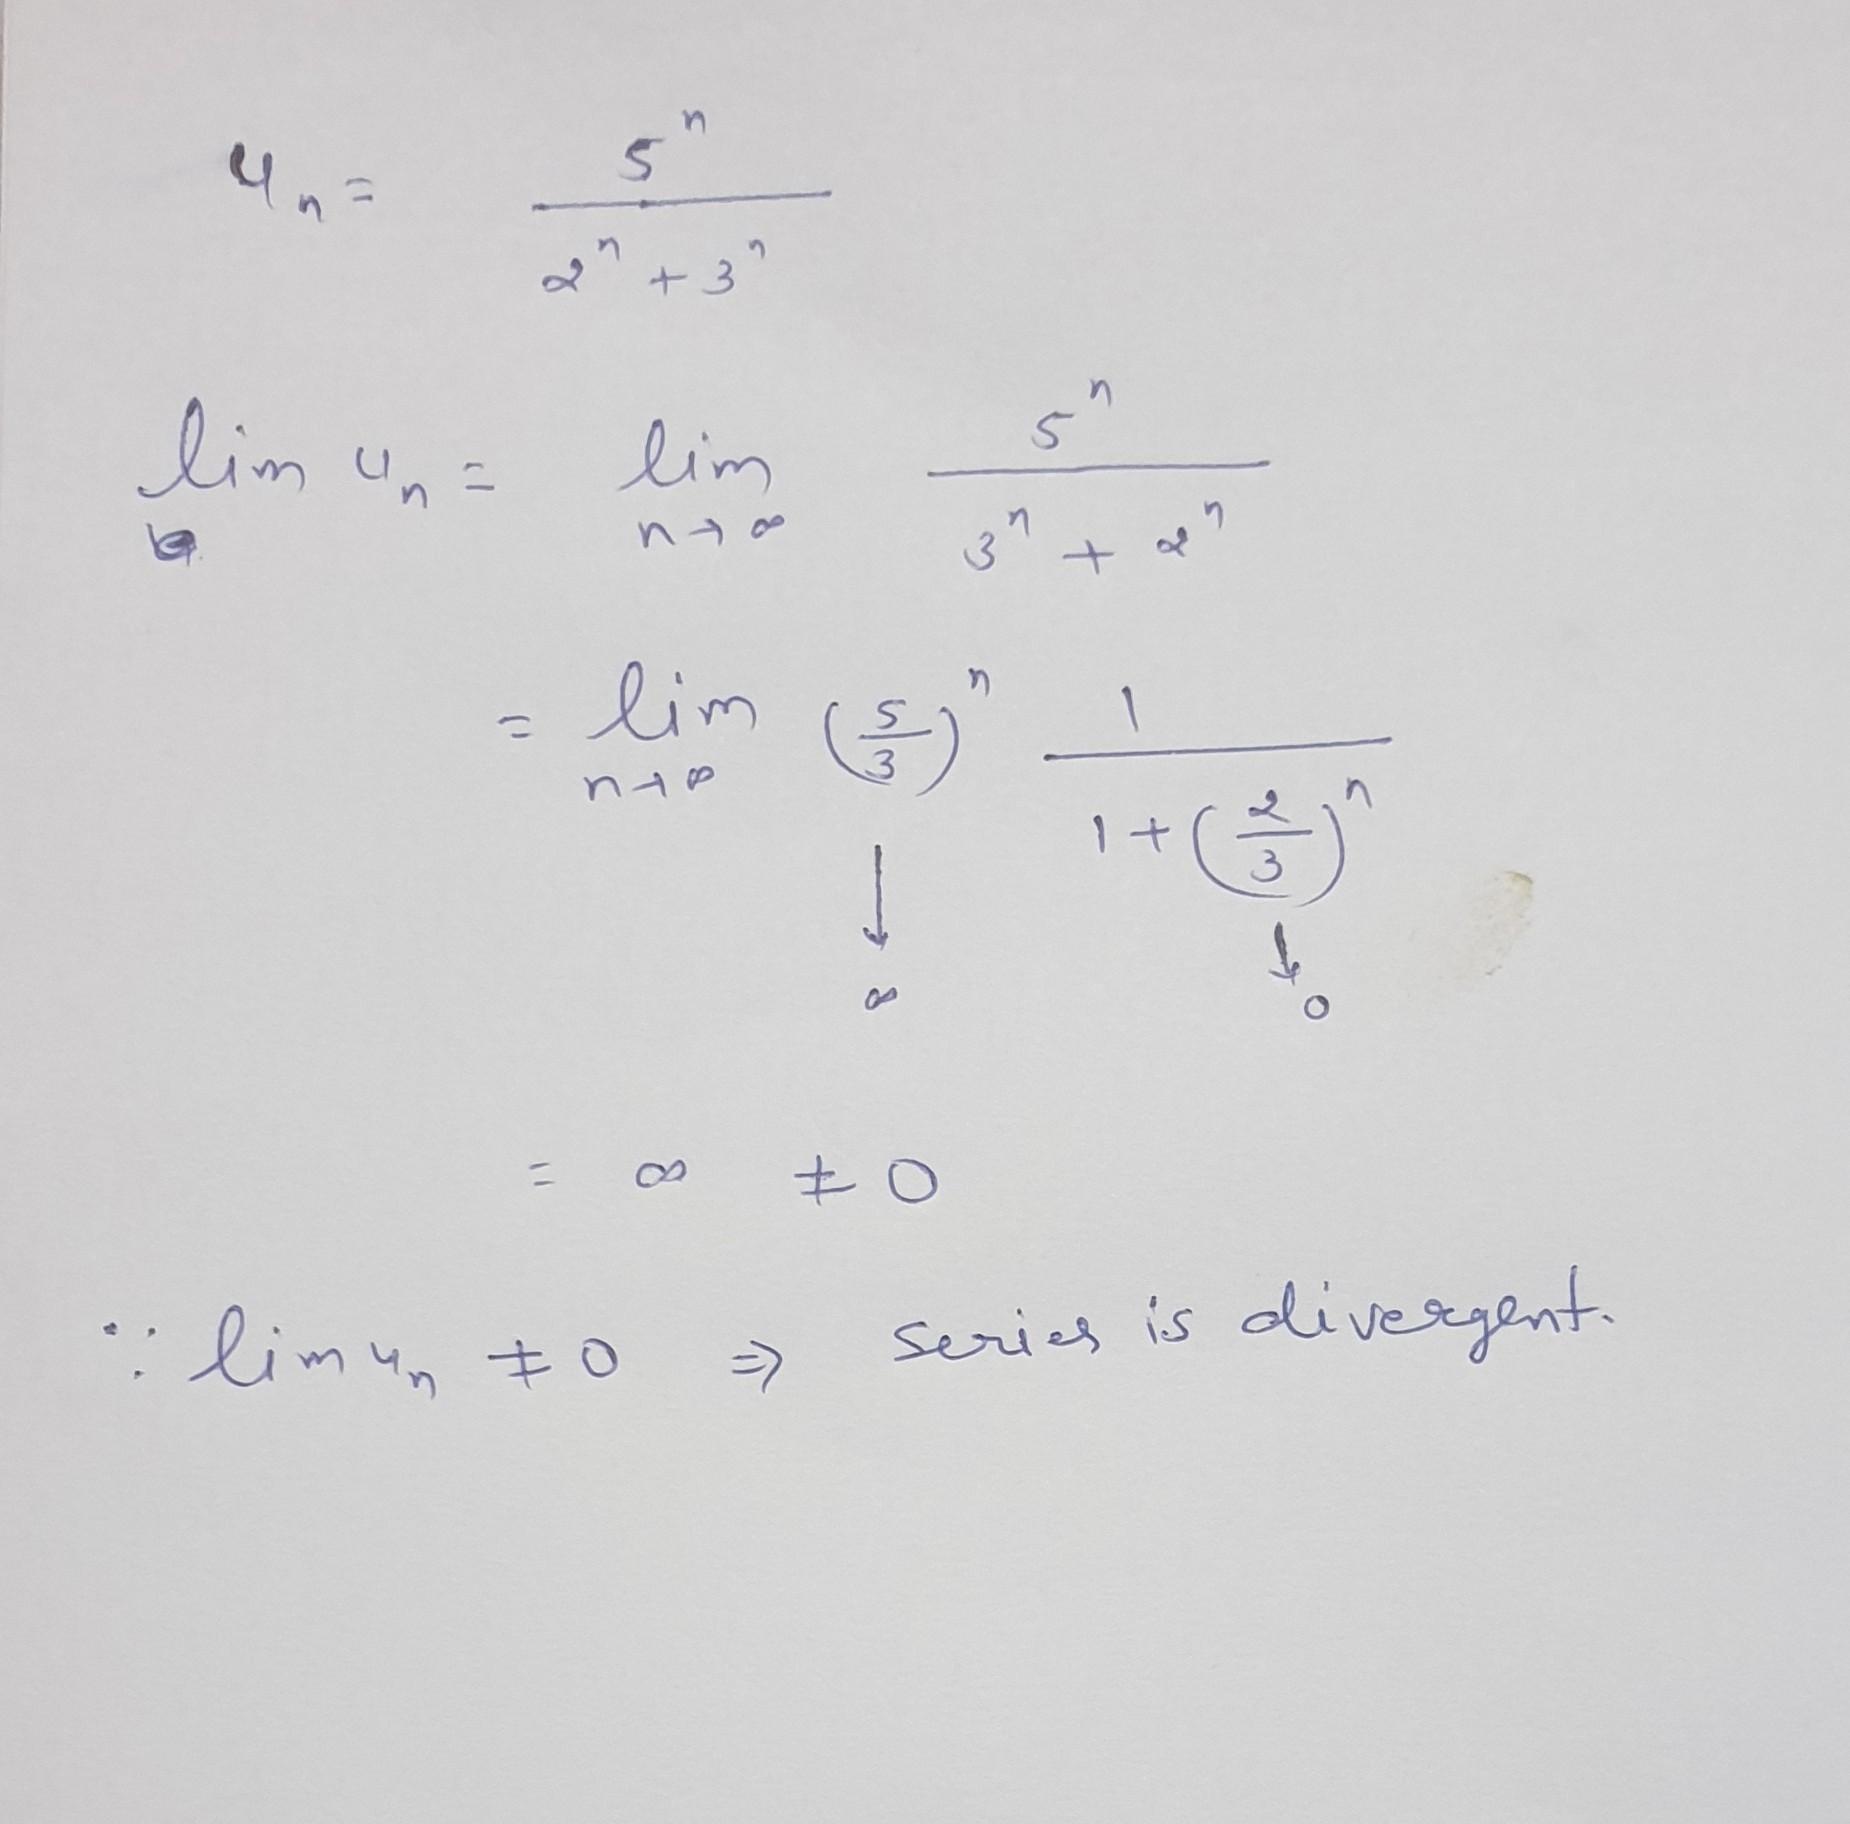 u_n = 5^n / (2^n + 3^n)
lim u_n = lim_{n→∞} 5^n / (3^n + 2^n)
= lim_{n→∞} (5/3)^n 1 / (1 + (2/3)^n)
↓ ↓
∞ 0
= ∞ ≠ 0
∵ lim u_n ≠ 0 ⇒ series is divergent.